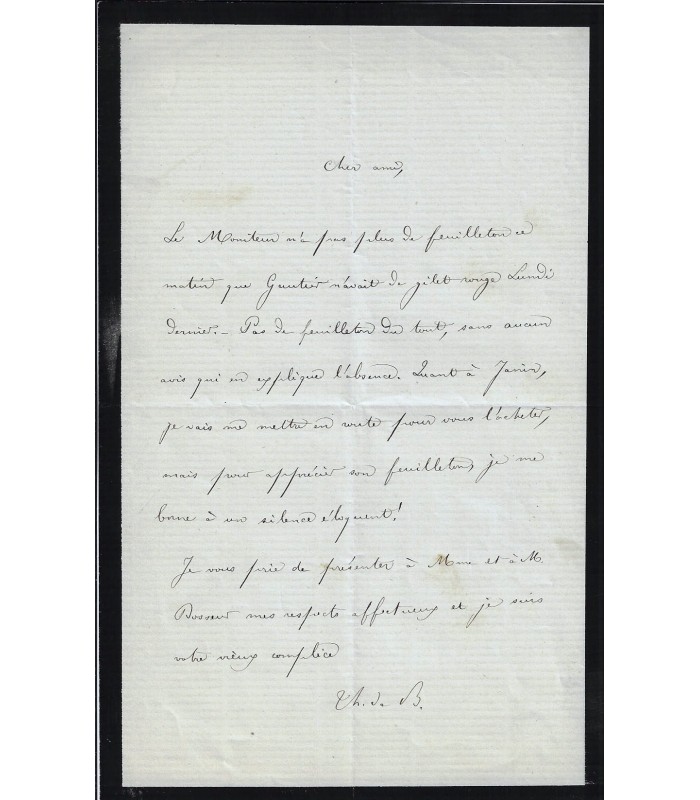 Cher ami,
Le Moniteur n'a pas plus de feuilleton ce
matin que Gautier n'avait de gilet rouge Lundi
dernier. – Pas de feuilleton du tout, sans aucun
avis qui en explique l'absence. Quant à Janin,
je vais me mettre en route pour vous l'acheter,
mais pour apprécier son feuilleton, je me
borne à un silence éloquent!
Je vous prie de présenter à Mme et à M.
mes respects affectueux et je suis
votre vieux complice
Th. de B.